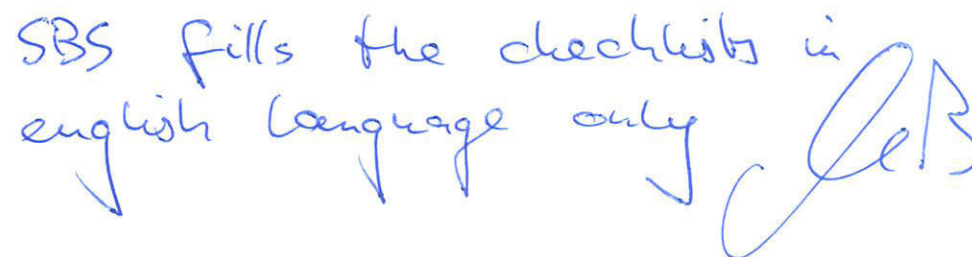 SBS fills the checklists in
english language only